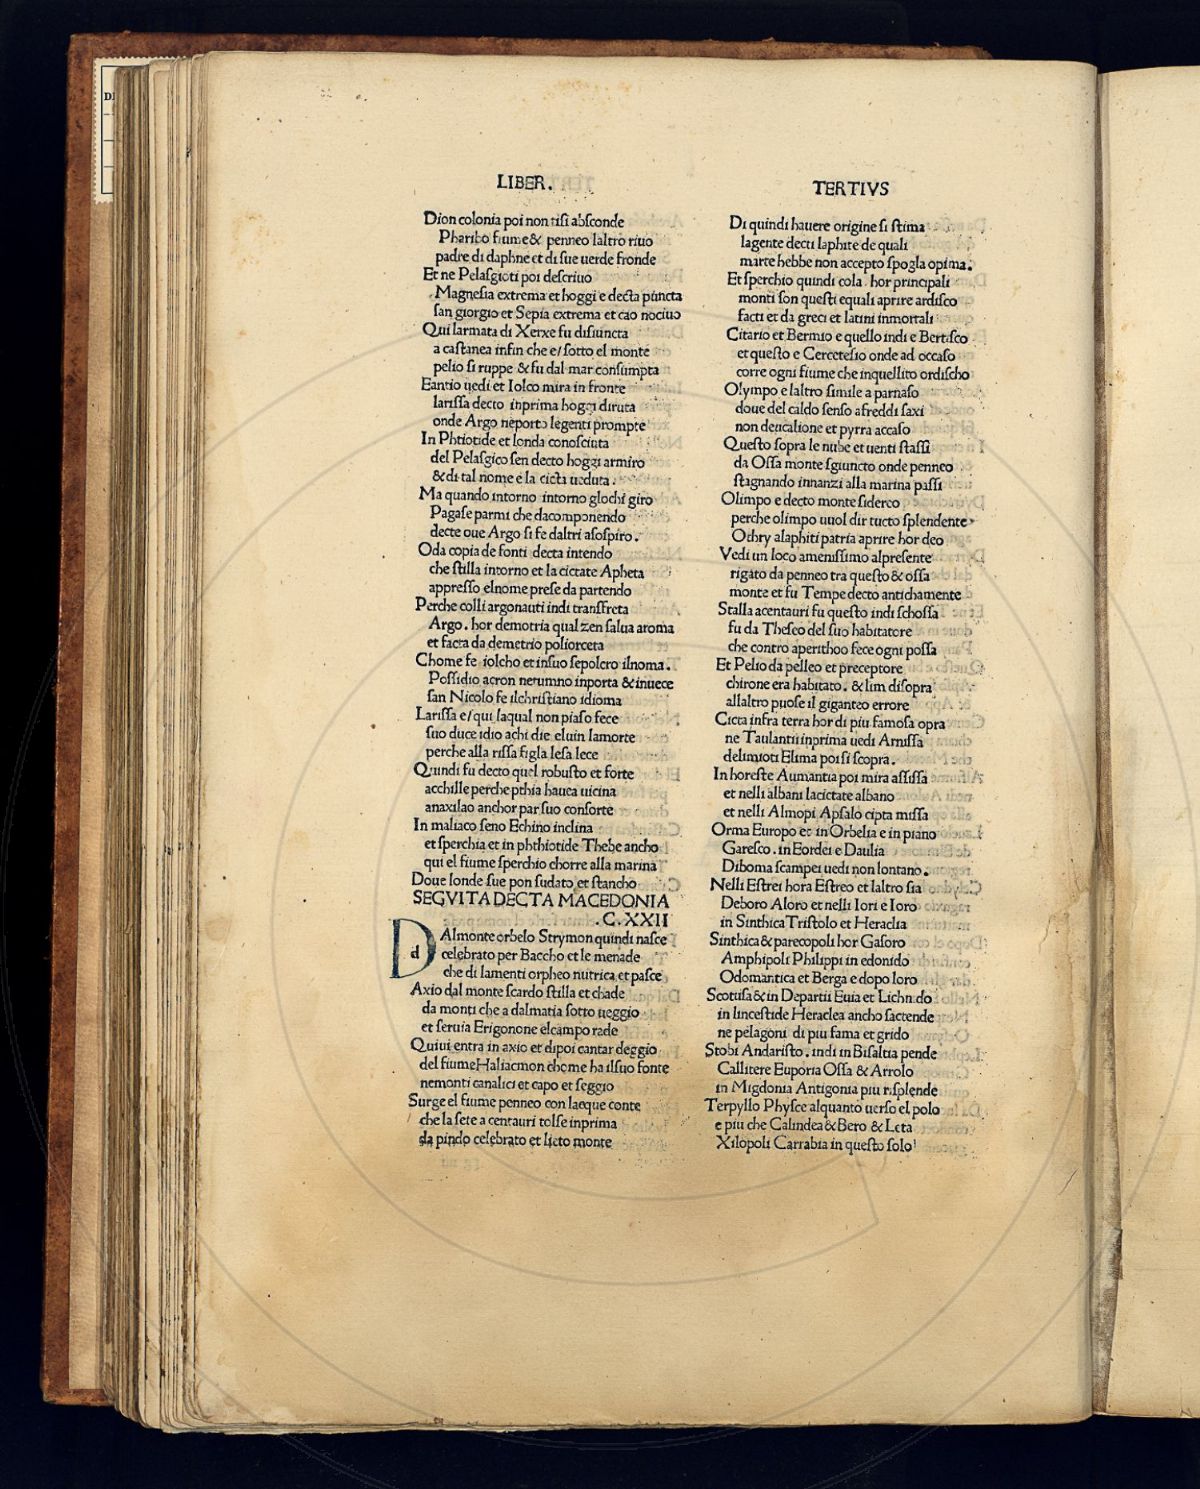 LIBER.
Dion colonia poi non tisi absconde
Pharibo fiume & penneo laltro riuo
padre di daphne et di sue uerde fronde
Et ne Pelasgioti poi descriuo
Magnesia extrema et hoggi e decta puncta
san giorgio et Sepia extrema et cao nociuo
Qui larmata di Xerxe fu disiuncta
a castanea infin che e/ sotto el monte
pelio si ruppe & fu dal mar consumpta
Eantio uedi et Iolco mira in fronte
larissa decto inprima hoggi diruta
onde Argo neporto legenti prompte
In Phtiotide et londa conosciuta
del Pelasgico sen decto hoggi armiro
& di tal nome e la cicta ueduta.
Ma quando intorno intorno glochi giro
Pagase parmi che dacomponendo
decte oue Argo si fe daltri asospiro.
Oda copia de fonti decta intendo
che stilla intorno et la cictate Apheta
appresso elnome prese da partendo
Perche colli argonauti indi transfreta
Argo. hor demotria qual zen salua aroma
et facta da demetrio poliorceta
Chome fe iolcho et insuo sepolcro ilnoma.
Possidio acron netumno inporta & inuece
san Nicolo fe ilchristiano idioma
Larissa e/ qui laqual non piaso fece
suo duce idio achi die eluin lamorte
perche alla rissa figla lesa lece
Quindi fu decto quel robusto et forte
acchille perche pthia hauea uicina
anaxilao anchor par suo consorte
In maliaco seno Echino inclina
et sperchia et in phthiotide Thebe ancho
qui el fiume sperchio chorre alla marina
Doue londe sue pon sudato et stancho
SEGVITA DECTA MACEDONIA
.C.XXII
D d Almonte orbelo Strymon quindi nasce
celebrato per Baccho et le menade
che di lamenti orpheo nutrica et pasce
Axio dal monte scardo stilla et chade
da monti che a dalmatia sotto ueggio
et seruia Erigonone elcampo rade
Quiui entra in axio et dipoi cantar deggio
del fiume Haliacmon chome ha ilsuo fonte
nemonti canalici et capo et seggio
Surge el fiume penneo con lacque conte
che la sete a centauri tolse inprima
da pindo celebrato et lieto monte
TERTIVS
Di quindi hauere origine si stima
lagente decti laphite de quali
marte hebbe non accepto spogla opima.
Et sperchio quindi cola. hor principali
monti son questi equali aprire ardisco
facti et da greci et latini inmortali
Citario et Bermio e quello indi e Bertisco
et questo e Cercetesio onde ad occaso
corre ogni fiume che inquellito ordischo
Olympo e laltro simile a parnaso
doue del caldo senso afreddi saxi
non deucalione et pyrra accaso
Questo sopra le nube et uenti stassi
da Ossa monte sgiuncto onde penneo
stagnando innanzi alla marina passi
Olimpo e decto monte sidereo
perche olimpo uuol dir tucto splendente
Othry alaphiti patria aprire hor deo
Vedi un loco amenissimo alpresente
rigato da penneo tra questo & ossa
monte et fu Tempe decto antichamente
Stalla acentauri fu questo indi schossa
fu da Theseo del suo habitatore
che contro aperithoo fece ogni possa
Et Pelio da pelleo et preceptore
chirone era habitato. & lim disopra
allaltro puose il giganteo errore
Cicta infra terra hor di piu famosa opra
ne Taulantii inprima uedi Arnissa
delimioti Elima poi si scopra.
In horeste Aumantia poi mira assissa
et nelli albani lacictate albano
et nelli Almopi Apsalo cipta missa
Orma Europo et in Orbelia e in piano
Garesco. in Eordei e Daulia
Diboma scampei uedi non lontano.
Nelli Estrei hora Estreo et laltro sia
Deboro Aloro et nelli Iori e Ioro
in Sinthica Tristolo et Heraclia
Sinthica & parecopoli hor Gasoro
Amphipoli Philippi in edonido
Odomantica et Berga e dopo loro
Scotusa & in Departii Euia et Lichnido
in lincestide Heraclea ancho sactende
ne pelagoni di piu fama et grido
Stobi Andaristo. indi in Bisaltia pende
Callitere Euporia Ossa & Arrolo
in Migdonia Antigonia piu risplende
Terpyllo Physce alquanto uerso el polo
e piu che Calindea & Bero & Leta
Xilopoli Carrabia in questo solo